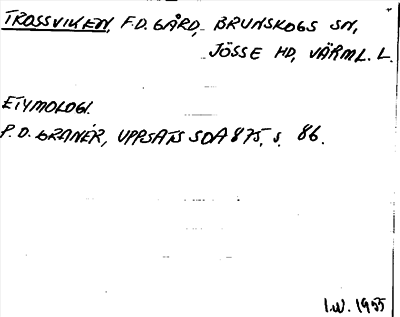 TROSSVIKEN, F.D. GÅRD, BRUNSKOGS SN,
JÖSSE HD, VÄRML. L.
ETYMOLOGI.
P.D. GRANÉR, UPPSATS SOA 875, S. 86.
I.W. 1955